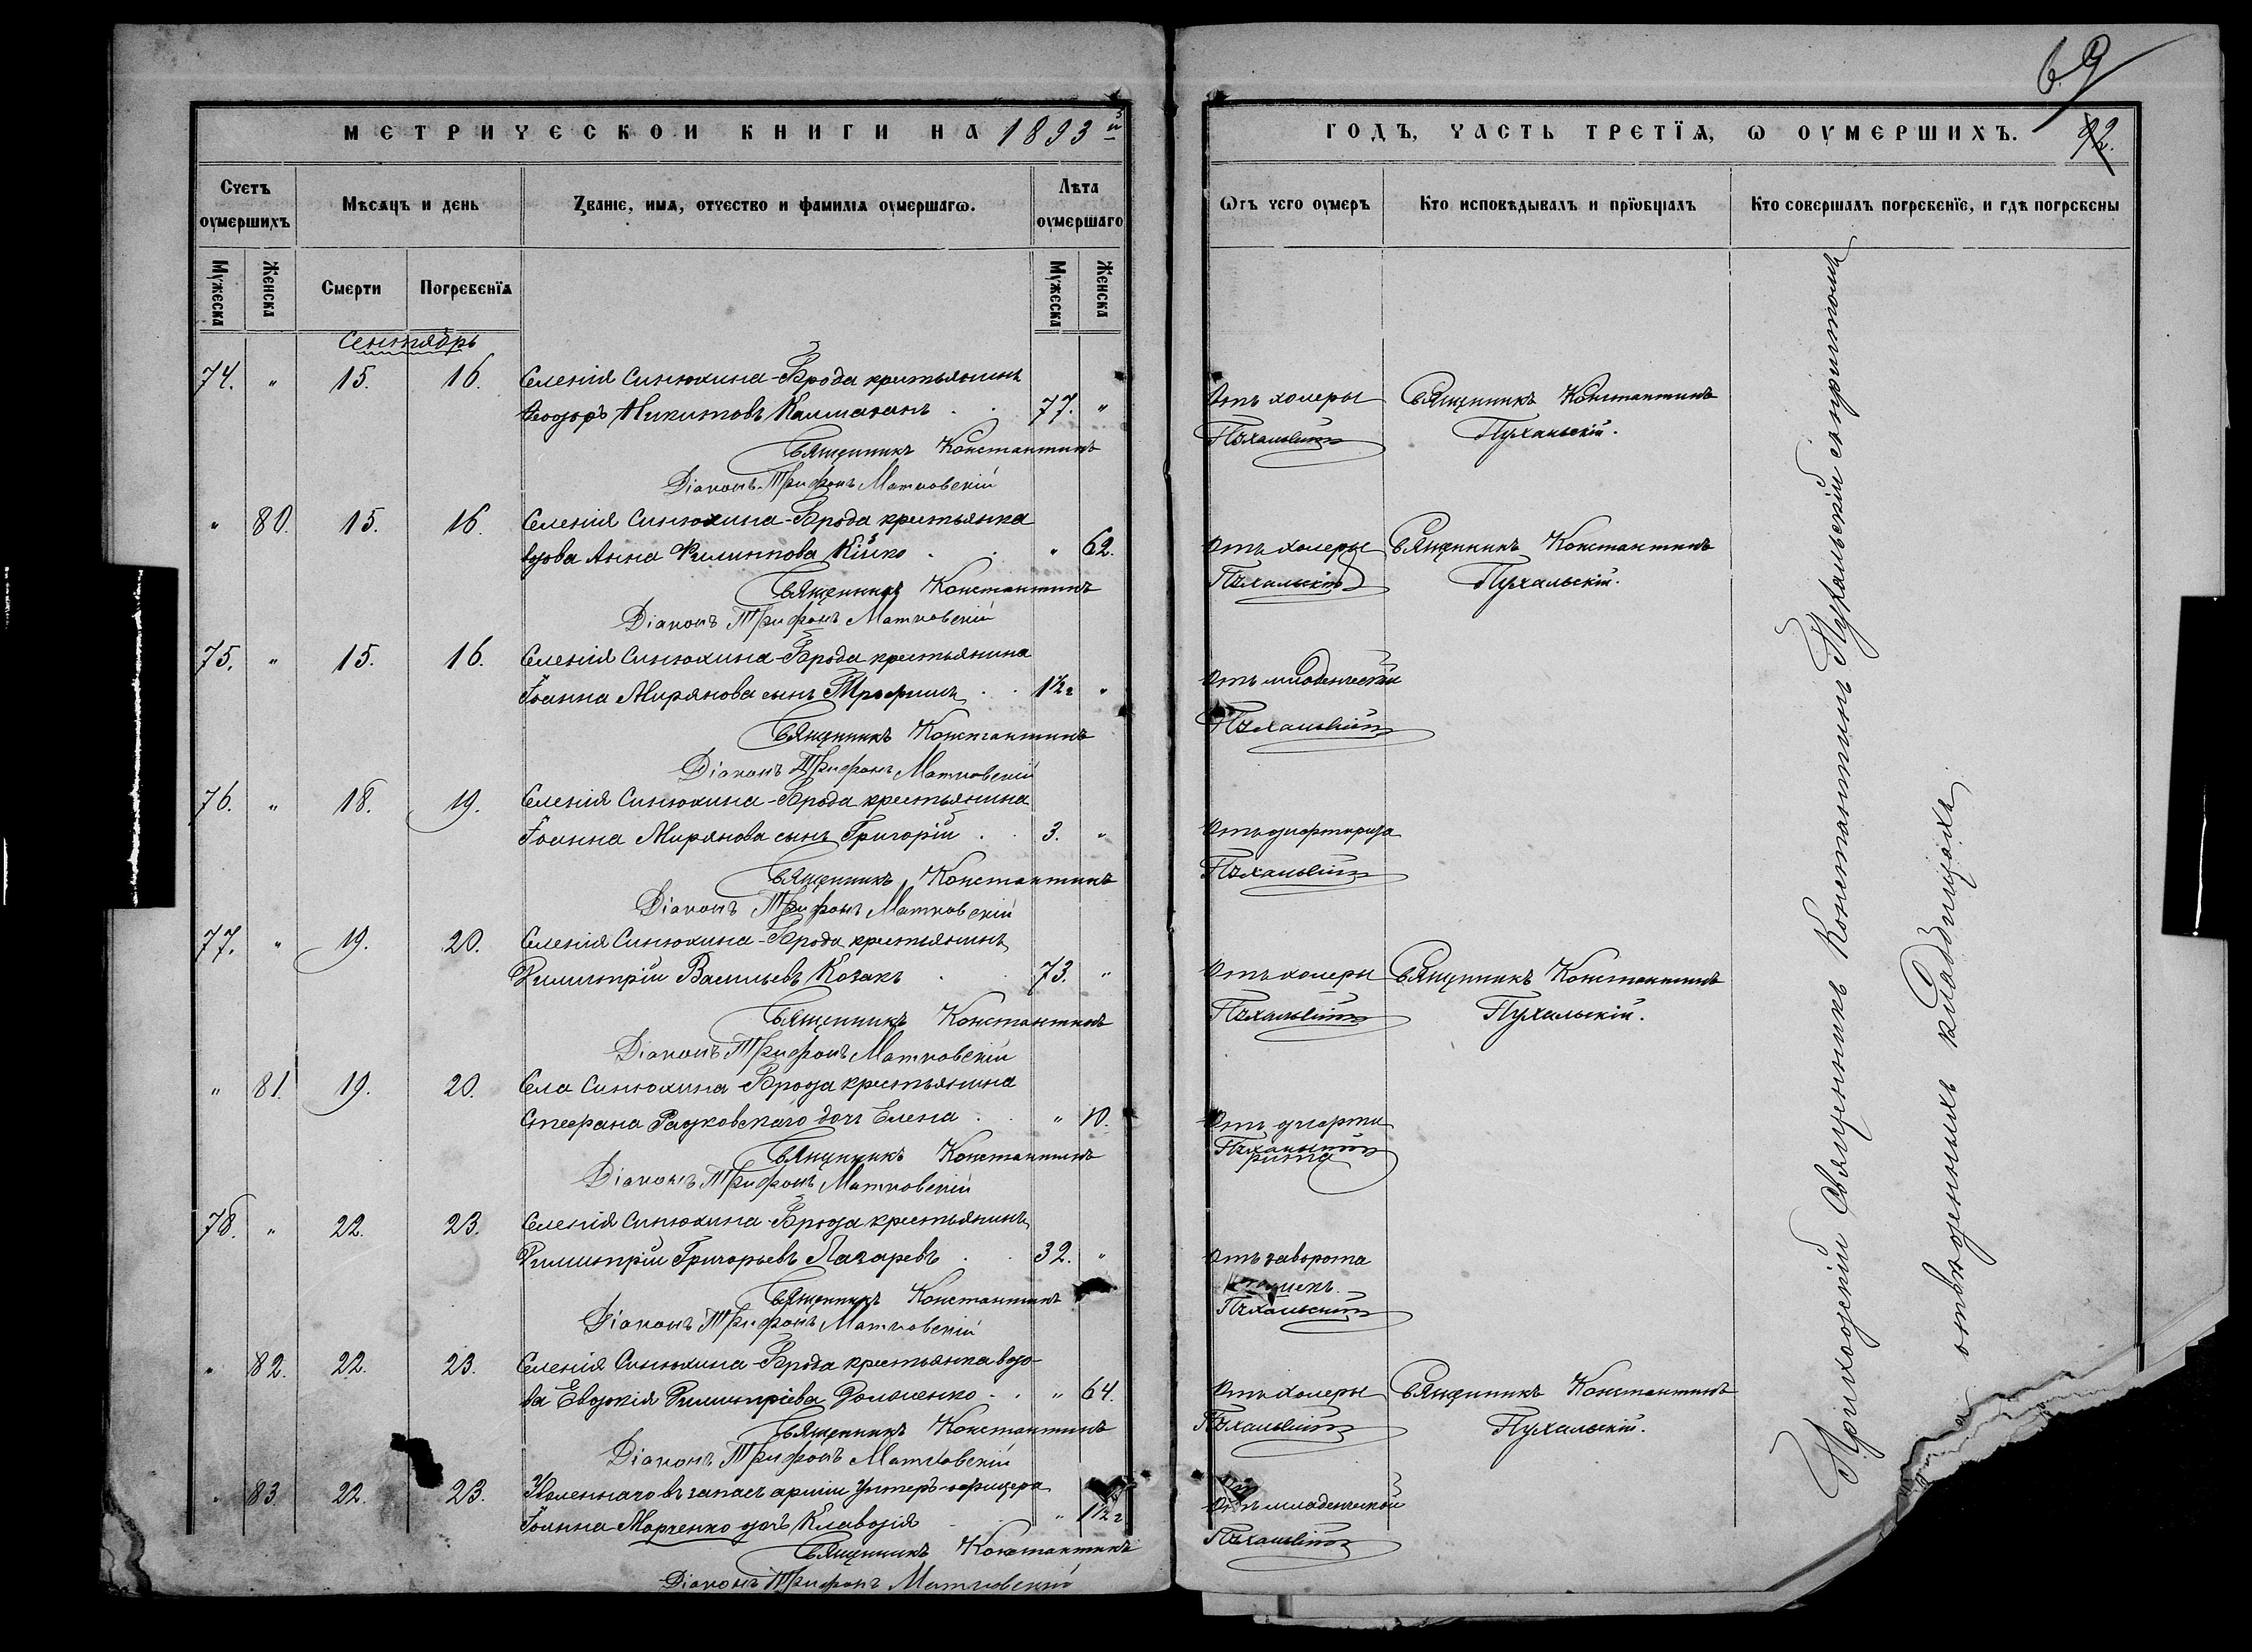 МЕТРИЧЕСКОЙ КНИГИ НА 1893й
Счетъ оумершихъ
Мѣсяцъ и день
Званіе, имя, отчество и фамилія оумершагω.
Лѣта оумершаго
Мужеска
Женска
Смерти
Погребенїя
Мужеска
Женска
Сентябрь
74. " 15. 16. Селенія Синюхина-Брода крестьянинъ
Ѳеодоръ Никитовъ 77. "
Священникъ Константинъ
Діаконъ Трифонъ Матковскій
" 80. 15. 16. Селенія Синюхина-Брода крестьянка
вдова Анна Филиппова Кійко " 62.
Священникъ Константинъ
Діаконъ Трифонъ Матковскій
75. " 15. 16. Селенія Синюхина-Брода крестьянина
Іоанна Мирянова сынъ Трофимъ 1½ г "
Священникъ Константинъ
Діаконъ Трифонъ Матковскій
76. " 18. 19. Селенія Синюхина-Брода крестьянина
Іоанна Мирянова сынъ Григорій 3. "
Священникъ Константинъ
Діаконъ Трифонъ Матковскій
77. " 19. 20. Селенія Синюхина-Брода крестьянинъ
Димитрій Васильевъ Козакъ 73. "
Священникъ Константинъ
Діаконъ Трифонъ Матковскій
" 81. 19. 20. Села Синюхина-Брода крестьянина
Стефана Радковскаго дочь Елена " 10.
Священникъ Константинъ
Діаконъ Трифонъ Матковскій
78. " 22. 23. Селенія Синюхина-Брода крестьянинъ
Димитрій Григорьевъ Лазаревъ 32. "
Священникъ Константинъ
Діаконъ Трифонъ Матковскій
" 82. 22. 23. Селенія Синюхина-Брода крестьянка вдо-
ва Евдокія Димитріева " 64.
Священникъ Константинъ
Діаконъ Трифонъ Матковскій
" 83. 22. 23. Уволеннаго въ запасъ арміи Унтеръ-офицера
Іоанна Марченко дочь Клавдія " 1½ г.
Священникъ Константинъ
Діаконъ Трифонъ Матковскій
69
ГОДЪ, ЧАСТЬ ТРЕТЇЯ, Ѡ ОУМЕРШИХЪ. 92.
Ѡтъ чего оумеръ
Кто исповѣдывалъ и прїобщалъ
Кто совершалъ погребенїе, и гдѣ погребены
Отъ холеры Священникъ Константинъ
Пухальскій Пухальскій.
Отъ холеры Священникъ Константинъ
Пухальскій Пухальскій.
Отъ младенческой
Пухальскій
Отъ дифтерита
Пухальскій
Отъ холеры Священникъ Константинъ
Пухальскій Пухальскій.
Отъ дифте
рита
Пухальскій
Отъ заворота
кишекъ.
Пухальскій
Отъ холеры Священникъ Константинъ
Пухальскій Пухальскій.
Отъ младенческой
Пухальскій
Приходскій Священникъ Константинъ Пухальскій съ причтомъ
на отведенныхъ кладбищахъ